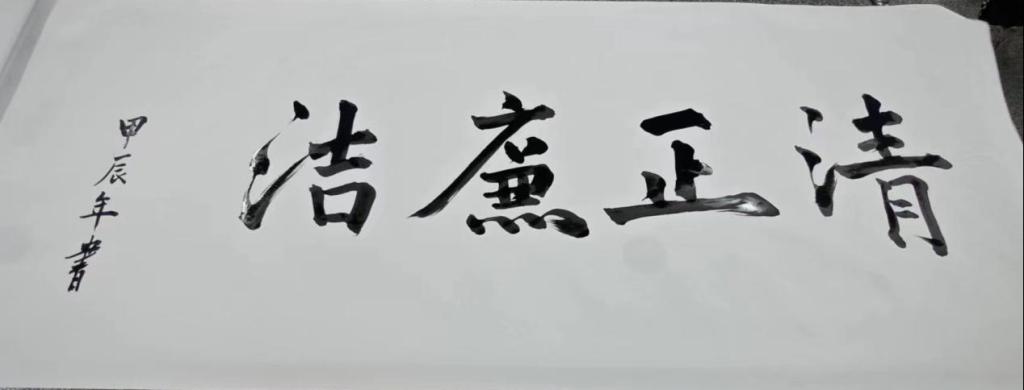 清正廉洁
甲辰年書